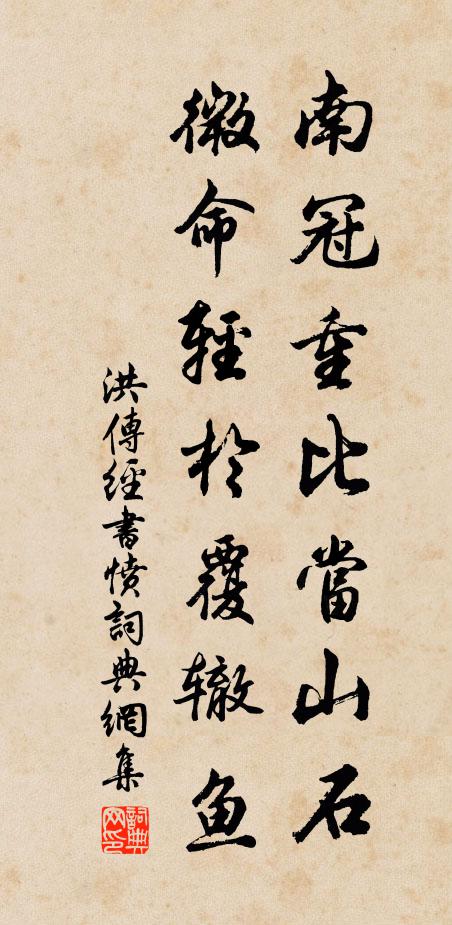 南冠重比當山石
微命輕於覆轍魚
洪傳經書憤詞典網集
詞典网印